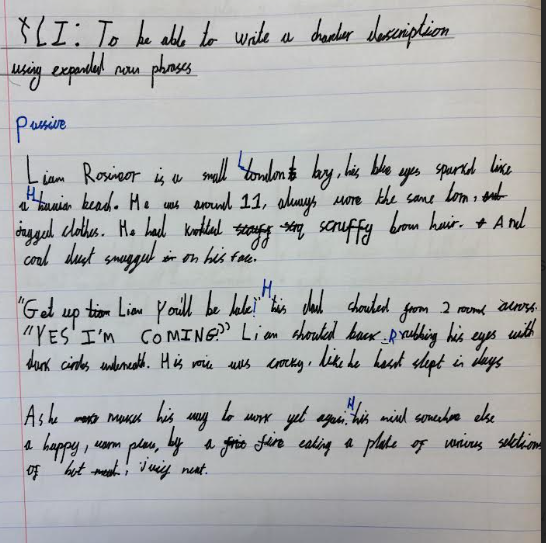 LI: To be able to write a character description
using expanded noun phrases
Passive
Liam Rosinoor is a small London boy, his blue eyes sparkd like
a Hawaian beach. He was around 11, always wore the same torn,
Jagged clothes. He had knotted scruffy brown hair. And
coal dust smugged on his face.
"Get up Liam You'll be late!" His dad shouted from 2 rooms across.
"YES I'M COMING!" Liam shouted back. Rubbing his eyes with
dark circles underneath. His voice was crocky, like he hasnt slept in days
As he makes his way to work yet again. His mind somewhere else
a happy, warm place, by a fire eating a plate of various selections
of hot juicy meat.